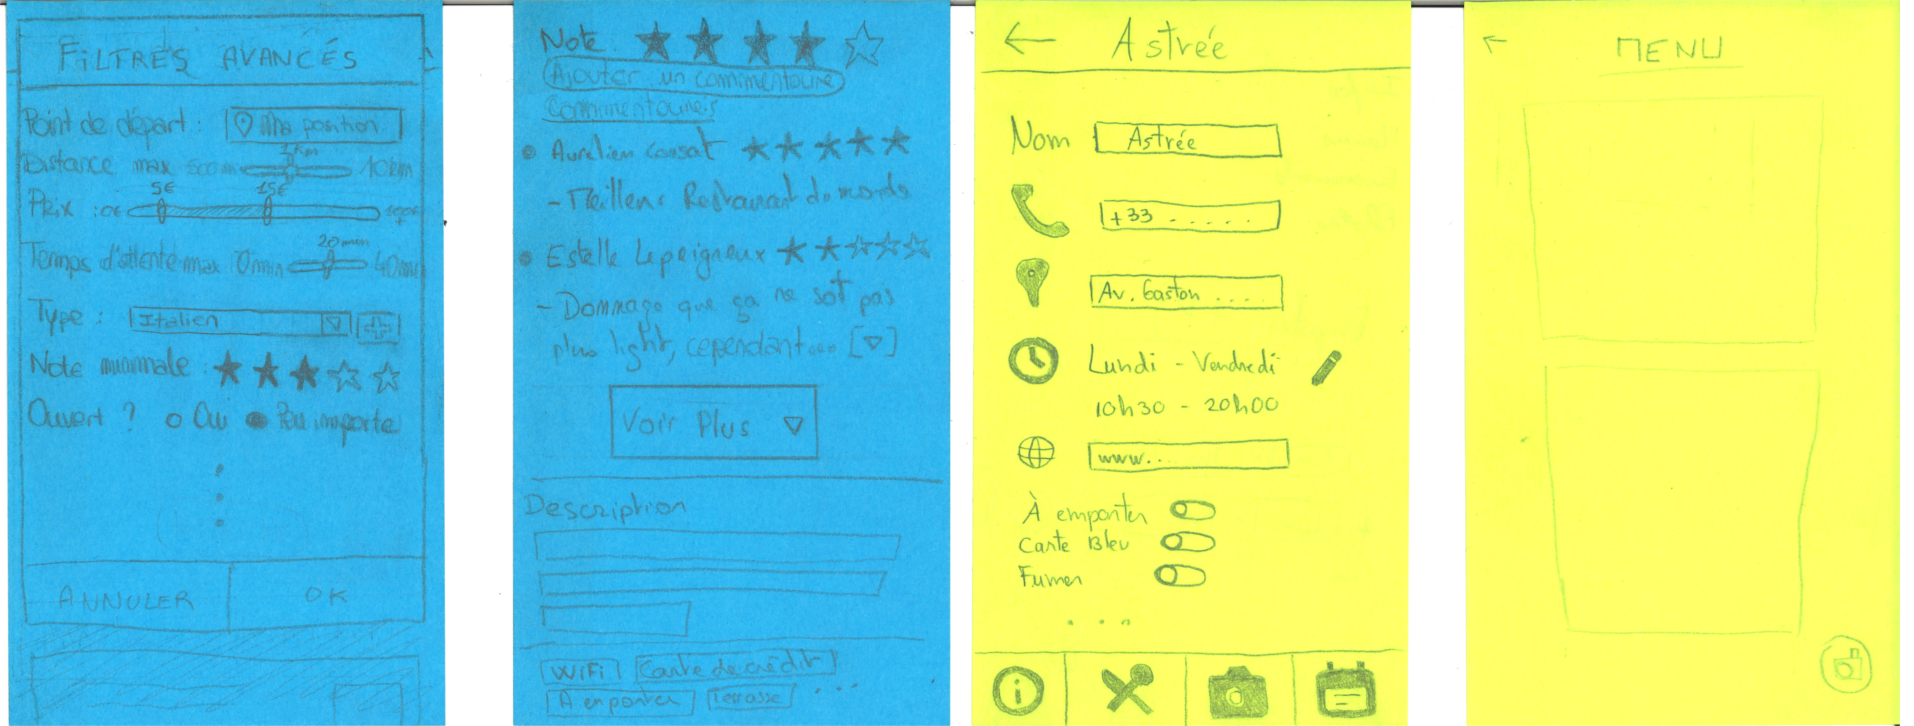 FILTRES AVANCÉS
Point de départ : Ma position
1 Km
Distance max 500 m 10 km
5€ 15€
Prix : 0€ 100€ +
20 min
Temps d'attente max 0 min 40 min
Type : Italien
Note minimale :
Ouvert ? Oui Peu importe
ANNULER OK
Note
Ajouter un commentaire
Commentaires
Aurélien
- Meilleur Restaurant du monde
Estelle Lepeigneux
- Dommage que ça ne soit pas
plus light, cependant...
Voir Plus
Description
WiFi Carte de crédit
A emporter Terrasse ...
Astrée
Nom Astrée
+33 . . . . .
Av. Gaston ....
Lundi - Vendredi
10h30 - 20h00
www...
À emporter
Carte Bleu
Fumer
. . .
MENU